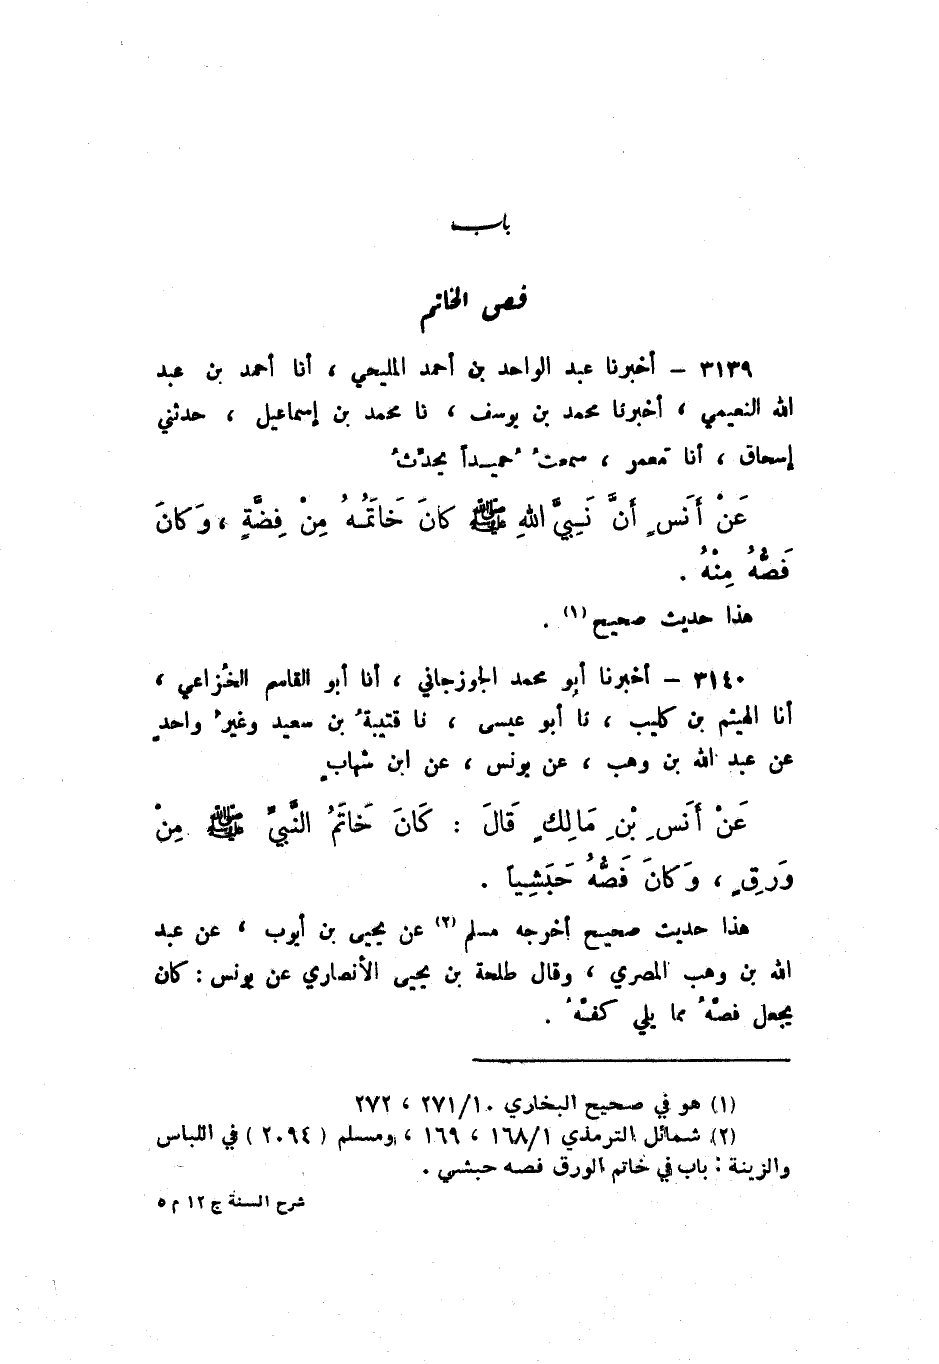 باب
فص الخاتم
٣١٣٩ – أخبرنا عبد الواحد بن أحمد المليحي ، أنا أحمد بن عبد
الله النعيمي ، أخبرنا محمد بن يوسف ، نا محمد بن إسماعيل ، حدثني
إسحاق ، أنا مَعمر ، سمعتُ حُميداً يحدّثُ
عَنْ أَنَسٍ أَنَّ نَبِيَّ اللهِ ﷺ كانَ خَاتَمُهُ مِنْ فِضَّةٍ ، وَكانَ
فَصُّهُ مِنْهُ .
هذا حديث صحيح (١) .
٣١٤٠ – أخبرنا أبو محمد الجوزجاني ، أنا أبو القاسم الخُزاعي ،
أنا الهيثم بن كليب ، نا أبو عيسى ، نا قتيبةُ بن سعيد وغيرُ واحدٍ
عن عبد الله بن وهب ، عن يونس ، عن ابن شهابٍ
عَنْ أَنَسِ بْنِ مَالِكٍ قَالَ : كَانَ خَاتَمُ النَّبِيِّ ﷺ مِنْ
وَرِقٍ ، وَكانَ فَصُّهُ حَبَشِياً .
هذا حديث صحيح أخرجه مسلم (٢) عن يحيى بن أيوب ، عن عبد
الله بن وهب المصري ، وقال طلحة بن يحيى الأنصاري عن يونس : كان
يجعل فصّهُ مما يلي كفّهُ .
(١) هو في صحيح البخاري ٢٧١/١٠ ، ٢٧٢
(٢) شمائل الترمذي ١٦٨/١ ، ١٦٩ ، ومسلم ( ٢٠٩٤ ) في اللباس
والزينة : باب في خاتم الورق فصه حبشي .
شرح السنة ج ١٢ م ٥